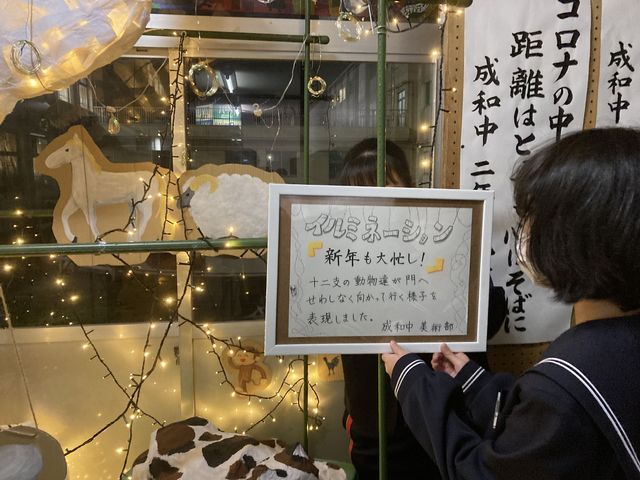 イルミネーション
『新年も大忙し!』
十二支の動物達が門へ
せわしなく向かって行く様子を
表現しました。
成和中 美術部
コロナの中
距離はと
にそばに
成和中 二年
成和中